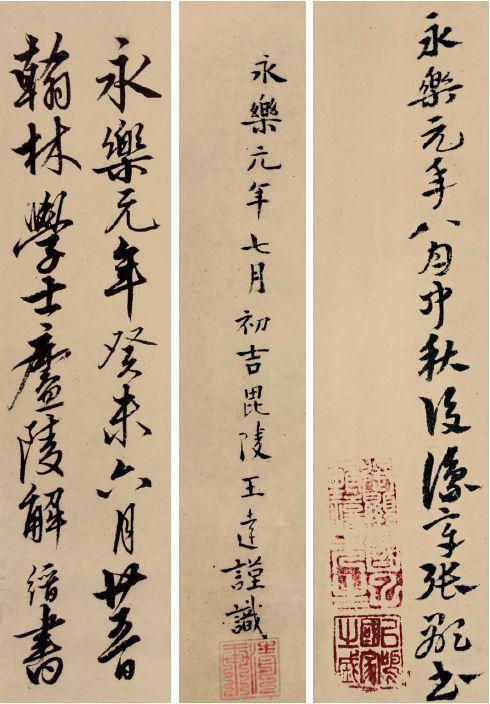 永樂元年八月中秋後豫章張書
永樂元年七月初吉毘陵王達謹識
永樂元年癸未六月廿五日
翰林學士廬陵解縉書